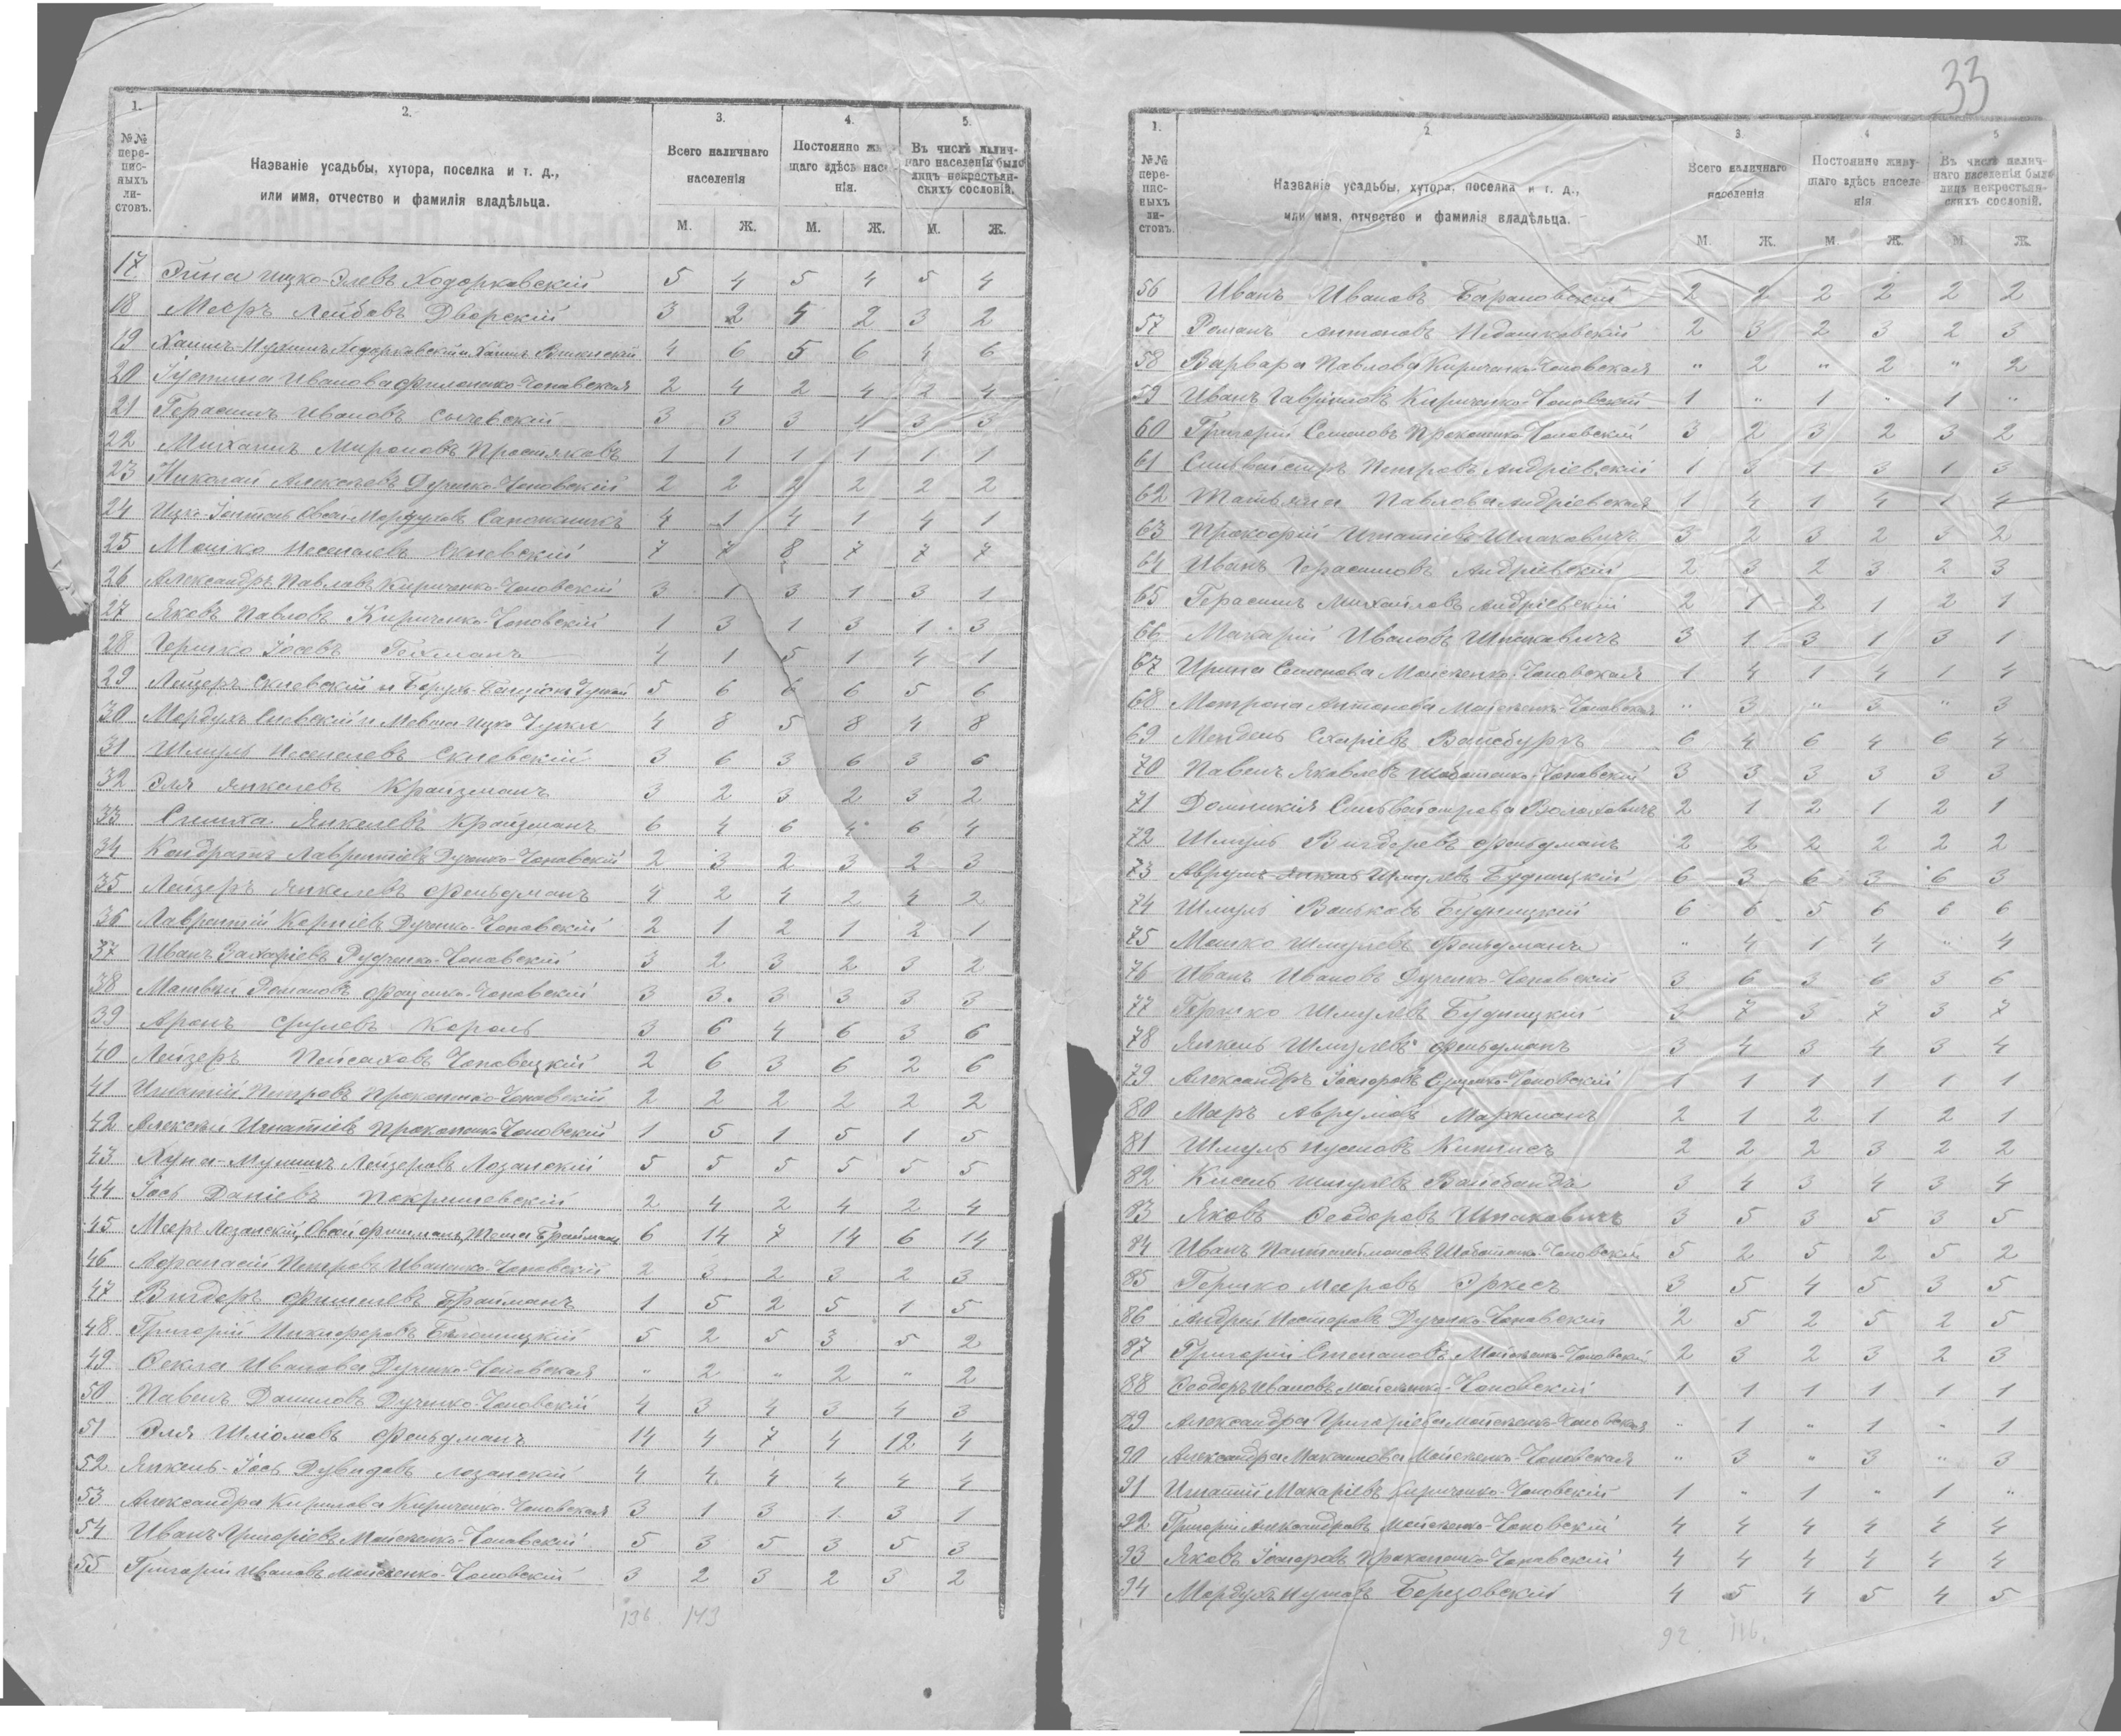 33
1. 2. 3. 4. 5.
№№ пере-пис-ныхъ ли-стовъ. Названіе усадьбы, хутора, поселка и т. д., или имя, отчество и фамилія владѣльца. Всего наличнаго населенія Постоянно жи щаго здѣсь нас нія. Въ числѣ налич-наго населенія было лицъ некрестьян-скихъ сословій.
М. Ж. М. Ж. М. Ж.
17 Ицко-Элевъ Ходорковскій 5 4 5 4 5 4
18 Мееръ Лейбовъ Дворскій 3 2 4 2 3 2
19 Хаимъ 4 6 5 6 4 6
20 Іустина Иванова Филоненко-Чоповская 2 4 2 4 2 4
21 Герасимъ Ивановъ Сычевскій 3 3 3 4 3 3
22 Михаилъ Мироновъ Простяковъ 1 1 1 1 1 1
23 Николай Алексѣевъ Дученко-Чоповскій 2 2 2 2 2 2
24 Сапожникъ 4 1 4 1 4 1
25 Мошко Скневскій 7 7 8 7 7 7
26 Александръ Павловъ Кириченко-Чоповскій 3 1 3 1 3 1
27 Яковъ Павловъ Кириченко-Чоповскій 1 3 1 3 1 3
28 Гершко Іосевъ Гехманъ 4 1 5 1 4 1
29 Лейзеръ Скневскій и Борухъ 5 6 6 6 5 6
30 Мордухъ 4 8 5 8 4 8
31 Шмуль Скневскій 3 6 3 6 3 6
32 Эля Янкелевъ Крайзманъ 3 2 3 2 3 2
33 Симха Янкелевъ Крайзманъ 6 4 6 4 6 4
34 Кондратъ Лаврентіевъ Дученко-Чоповскій 2 3 2 3 2 3
35 Лейзеръ Янкелевъ Фельдманъ 4 2 4 2 4 2
36 Лаврентій Корніевъ Дученко-Чоповскій 2 1 2 1 2 1
37 Иванъ Захаріевъ Дученко-Чоповскій 3 2 3 2 3 2
38 Матвѣй Романовъ Фещенко-Чоповскій 3 3 3 3 3 3
39 Аронъ Срулевъ Король 3 6 4 6 3 6
40 Лейзеръ Пейсаховъ Чоповецкій 2 6 3 6 2 6
41 Игнатій Петровъ Прокопенко-Чоповскій 2 2 2 2 2 2
42 Алексѣй Игнатіевъ Прокопенко-Чоповскій 1 5 1 5 1 5
43 Лейзеровъ Лозанскій 5 5 5 5 5 5
44 Іось Даніевъ Покришевскій 2 4 2 4 2 4
45 Мееръ Лозанскій, Овсей Фишманъ, Брайманъ 6 14 7 14 6 14
46 Афанасій Петровъ Иваненко-Чоповскій 2 3 2 3 2 3
47 Вигдеръ Фишелевъ Брайманъ 1 5 2 5 1 5
48 Григорій Никифоровъ Бѣлошицкій 5 2 5 3 5 2
49 Ѳекла Иванова Дученко-Чоповская " 2 " 2 " 2
50 Павелъ Даниловъ Дученко-Чоповскій 4 3 4 3 4 3
51 Эля Шліомовъ Фельдманъ 14 4 7 4 12 4
52 Янкель-Іось Дувидовъ Лозанскій 4 4 4 4 4 4
53 Александра Кирилова Кириченко-Чоповская 3 1 3 1 3 1
54 Иванъ Григоріевъ Мойсеенко-Чоповскій 5 3 5 3 5 3
55 Григорій Ивановъ Мойсеенко-Чоповскій 3 2 3 2 3 2
136. 143
1. 2. 3 4 5
№№ пере-пис-ныхъ ли-стовъ. Названіе усадьбы, хутора, поселка и т. д., или имя, отчество и фамилія владѣльца. Всего наличнаго населенія Постоянно живу-щаго здѣсь населе-нія Въ числѣ налич-наго населенія было лицъ некрестьян-скихъ сословій.
М. Ж. М. Ж. М. Ж.
56 Иванъ Ивановъ Барановскій 2 2 2 2 2 2
57 Романъ Антоновъ Недашковскій 2 3 2 3 2 3
58 Варвара Павлова Кириченко-Чоповская " 2 " 2 " 2
59 Иванъ Гавріиловъ Кириченко-Чоповскій 1 " 1 " 1 "
60 Григорій Семеновъ Прокопенко-Чоповскій 3 2 3 2 3 2
61 Сильвестръ Петровъ Андріевскій 1 3 1 3 1 3
62 Татьяна Павлова Андріевская 1 4 1 4 1 4
63 Прокофій Игнатіевъ Шпаковичъ 3 2 3 2 3 2
64 Иванъ Герасимовъ Андріевскій 2 3 2 3 2 3
65 Герасимъ Михайловъ Андріевскій 2 1 2 1 2 1
66 Макарій Ивановъ Шпаковичъ 3 1 3 1 3 1
67 Ирина Семенова Мойсеенко-Чоповская 1 4 1 4 1 4
68 Матрона Антонова Мойсеенко-Чоповская " 3 " 3 " 3
69 Мендель Вайсбургъ 6 4 6 4 6 4
70 Павелъ Яковлевъ Шобатенко-Чоповскій 3 3 3 3 3 3
71 Домникія Сильвестрова Волоховичъ 2 1 2 1 2 1
72 Шмуль Вигдеревъ Фельдманъ 2 2 2 2 2 2
73 Аврумъ Шмулевъ Будницкій 6 3 6 3 6 3
74 Шмуль Вольковъ Будницкій 6 6 5 6 6 6
75 Мошко Шмулевъ Фельдманъ " 4 1 4 " 4
76 Иванъ Ивановъ Дученко-Чоповскій 3 6 3 6 3 6
77 Гершко Шмулевъ Будницкій 3 7 3 7 3 7
78 Янкель Шмулевъ Фельдманъ 3 4 3 4 3 4
79 Александръ Чоповскій 1 1 1 1 1 1
80 Меръ Аврумовъ Маркманъ 2 1 2 1 2 1
81 Шмуль Нусиновъ Кипнисъ 2 2 2 3 2 2
82 Кисель Шмулевъ Вайсбандъ 3 4 3 4 3 4
83 Яковъ Ѳеодоровъ Шпаковичъ 3 5 3 5 3 5
84 Иванъ Пантелеймоновъ Шобатенко-Чоповскій 5 2 5 2 5 2
85 Гершко Мееровъ Эркесъ 3 5 4 5 3 5
86 Андрей Несторовъ Дученко-Чоповскій 2 5 2 5 2 5
87 Григорій Степановъ Мойсеенко-Чоповскій 2 3 2 3 2 3
88 Ѳеодоръ Ивановъ Мойсеенко-Чоповскій 1 1 1 1 1 1
89 Александра Григоріева Мойсеенко-Чоповская " 1 " 1 " 1
90 Александра Максимова Мойсеенко-Чоповская " 3 " 3 " 3
91 Игнатій Макаріевъ Кириченко-Чоповскій 1 " 1 " 1 "
92 Григорій Александровъ Мойсеенко-Чоповскій 4 4 4 4 4 4
93 Яковъ Прокопенко-Чоповскій 4 4 4 4 4 4
94 Мордухъ Нутовъ Березовскій 4 5 4 5 4 5
92. 116.